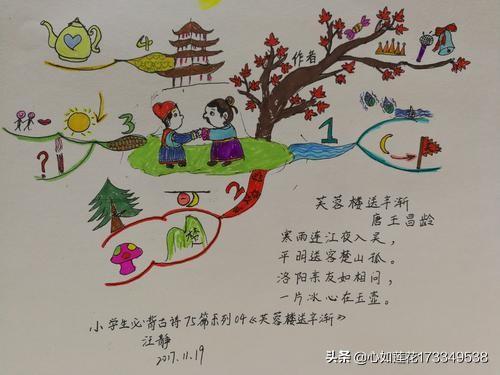 4
作者
3
1
?
2
楚
芙蓉楼送辛渐
唐王昌龄
寒雨连江夜入吴，
平明送客楚山孤。
洛阳亲友如相问，
一片冰心在玉壶。
小学生必背古诗75篇系列04《芙蓉楼送辛渐》
汪静
2017.11.19
头条 @心如莲花173349538